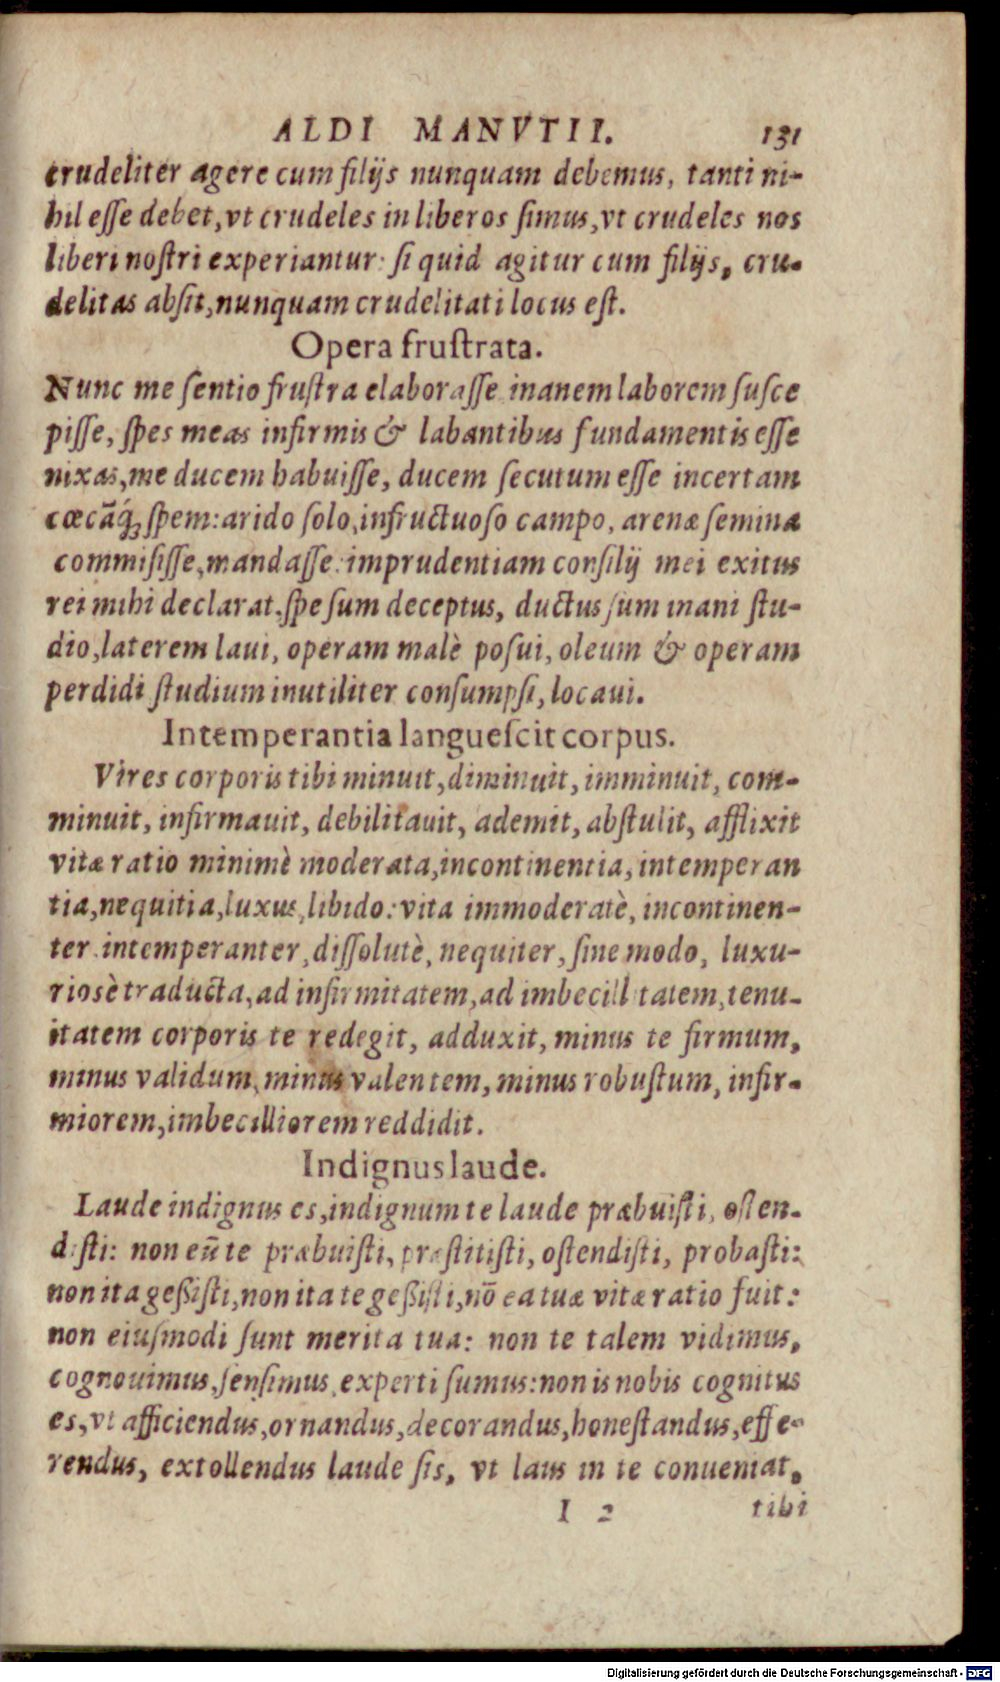 ALDI MANVTII. 131
crudeliter agere cum filijs nunquam debemus, tanti ni-
hil esse debet, vt crudeles in liberos simus, vt crudeles nos
liberi nostri experiantur: si quid agitur cum filijs, cru-
delitas absit, nunquam crudelitati locus est.
Opera frustrata.
Nunc me sentio frustra elaborasse inanem laborem susce
pisse, spes meas infirmis & labantibus fundamentis esse
nixas, me ducem habuisse, ducem secutum esse incertam
cœcāq́; spem: arido solo, infructuoso campo, arenæ semina
commisisse, mandasse imprudentiam consilij mei exitus
rei mihi declarat, spe sum deceptus, ductus sum inani stu-
dio, laterem laui, operam malè posui, oleum & operam
perdidi studium inutiliter consumpsi, locaui.
Intemperantia languescit corpus.
Vires corporis tibi minuit, diminuit, imminuit, com-
minuit, infirmauit, debilitauit, ademit, abstulit, afflixit
vitæ ratio minimè moderata, incontinentia, intemperan
tia, nequitia, luxus, libido: vita immoderatè, incontinen-
ter intemperanter, dissolutè, nequiter, sine modo, luxu-
riosè traducta, ad infirmitatem, ad imbecill tatem, tenu-
itatem corporis te redegit, adduxit, minus te firmum,
minus validum, minus valentem, minus robustum, infir-
miorem, imbecilliorem reddidit.
Indignus laude.
Laude indignus es, indignum te laude præbuisti, osten-
disti: non eū te præbuisti, præstitisti, ostendisti, probasti:
non ita geßisti, non ita te geßisti, nō ea tuæ vitæ ratio fuit:
non eiusmodi sunt merita tua: non te talem vidimus,
cognouimus, sensimus, experti sumus: non is nobis cognitus
es, vt afficiendus, ornandus, decorandus, honestandus, effe-
rendus, extollendus laude sis, vt laus in te conueniat,
I 2 tibi
Digitalisierung gefördert durch die Deutsche Forschungsgemeinschaft - DFG